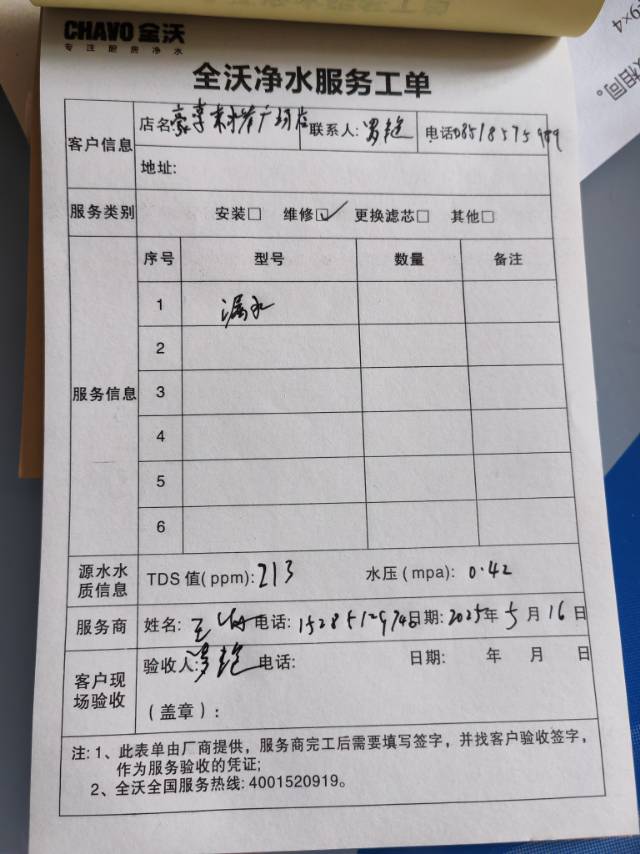 CHAVO 全沃
专注厨房净水
全沃净水服务工单
客户信息
店名: 豪享来 广场店 联系人: 电话: 08518575989
地址:
服务类别 安装□ 维修☑ 更换滤芯□ 其他□
服务信息
序号 型号 数量 备注
1 漏水
2
3
4
5
6
源水水质信息 TDS 值(ppm): 213 水压(mpa): 0.42
服务商 姓名: 王 电话: 日期: 2025年5月16日
客户现场验收
验收人: 电话: 日期: 年 月 日
(盖章):
注: 1、此表单由厂商提供，服务商完工后需要填写签字，并找客户验收签字，
作为服务验收的凭证;
2、全沃全国服务热线: 4001520919。
9×4
相同。